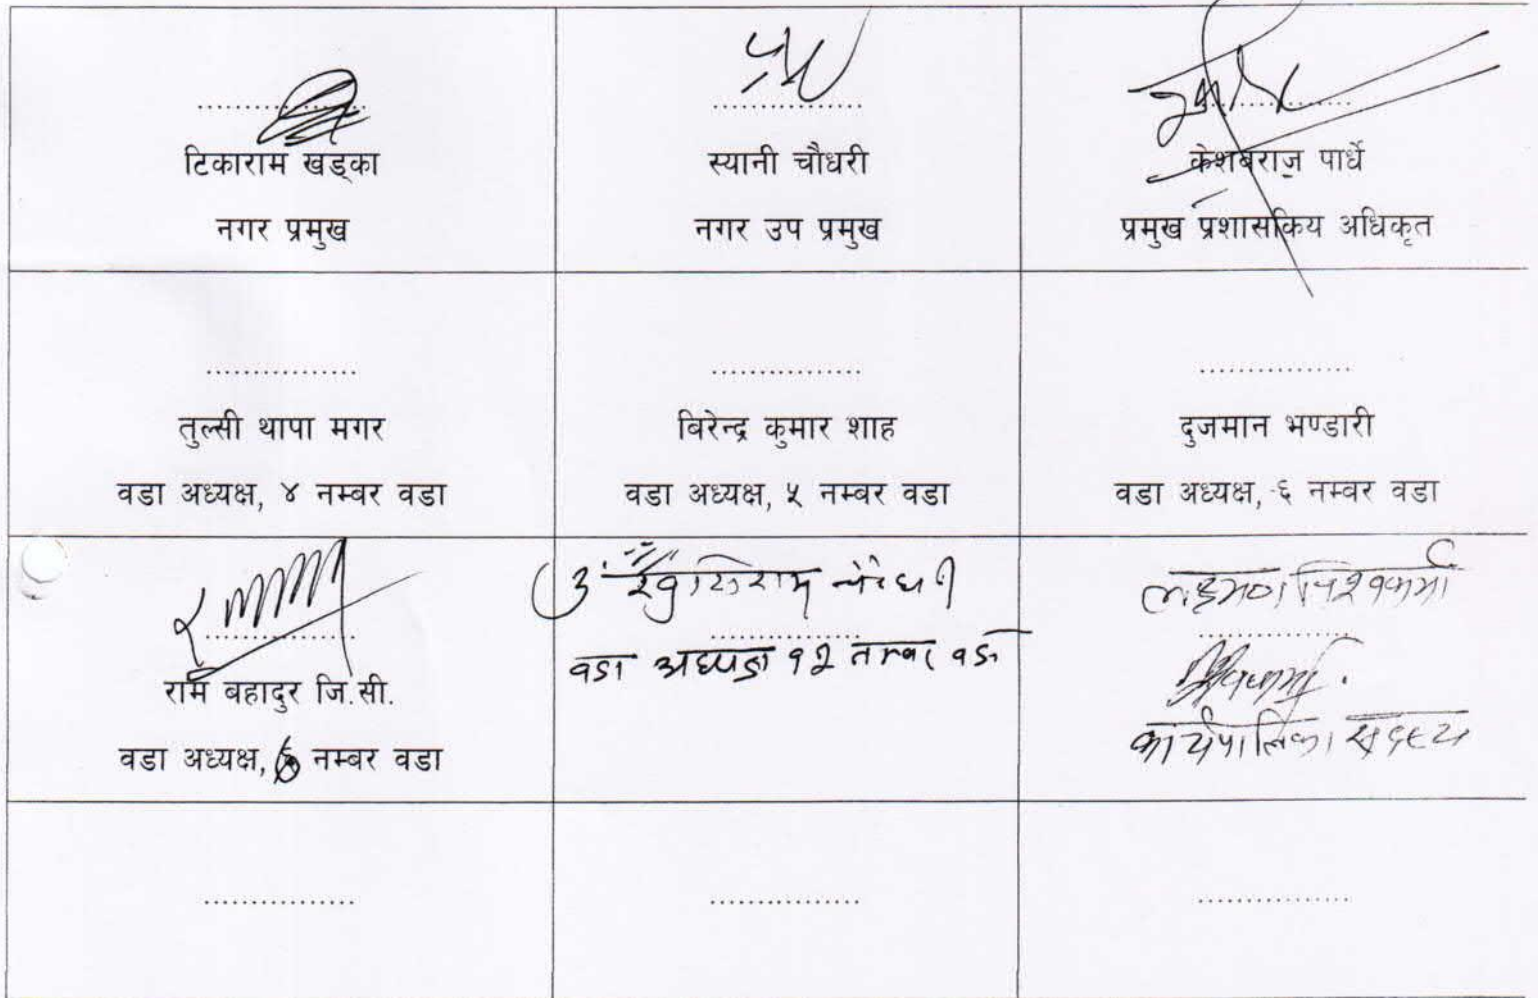 टिकाराम खड्का
नगर प्रमुख
स्यानी चौधरी
नगर उप प्रमुख
केशबराज पार्धे
प्रमुख प्रशासकिय अधिकृत
तुल्सी थापा मगर
वडा अध्यक्ष, ४ नम्बर वडा
बिरेन्द्र कुमार शाह
वडा अध्यक्ष, ५ नम्बर वडा
दुजमान भण्डारी
वडा अध्यक्ष, ६ नम्वर वडा
राम बहादुर जि.सी.
वडा अध्यक्ष, नम्बर वडा
चौधरी
वडा अध्यक्ष १२ नम्बर वडा
लक्ष्मण विश्वकर्मा
कार्यपालिका सदस्य